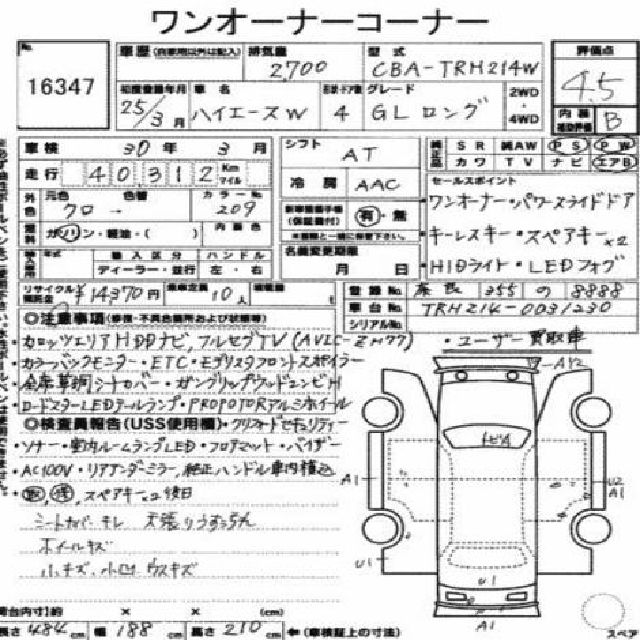 ワンオーナーコーナー
No. 16347
車歴 (自家用以外は記入)
排気量 2,700
型式 CBA-TRH214W
評価点 4.5
初度登録年月 25/3月
車名 ハイエースW
4
グレード GL ロング
2WD・4WD
内装 B
車検 30年 3月
走行 40312 Km マイル
シフト AT
冷房 AAC
SR 純AW PS PW
カワ TV ナビ エアB
セールスポイント
・ワンオーナー・パワースライドドア
・キーレスキー・スペアキー×2
・HIDライト・LEDフォグ
外色 元色 クロ → 色替
カラーNo. 209
燃料 ガソリン・軽油・( )
内装色
有・無
輸入区分 ディーラー・並行
ハンドル 左・右
名義変更期限 月 日
リサイクル預託金 ¥14370円
乗車定員 10人
登録No. 355 の 8888
車台No. TRH214-0031230
シリアルNo.
・ユーザー買取車
◎注意事項(修復・不具合箇所および状態等)
・カロッツェリアHDDナビ,フルセグTV(AVIC-ZH77)
・カラーバックモニター・ETC・モデリスタフロントスポイラー
シートカバー・ガングリップウッドコンビH
・ロードスターLEDテールランプ・アルミホイール
◎検査員報告(USS使用欄)
・ソナー・室内ルームランプLED・フロアマット・バイザー
・AC100V・リアアンダーミラー,純正ハンドル車内積込
スペアキー×2後日
シートカバーキレ
ホイールキズ
小キズ、小凹 ウスキズ
A1
U2
A1
U1
U1
A1
荷台内寸)約 × × (cm)
長さ 484cm 幅 188cm 高さ 210cm ←(車検証上の寸法)
スペア